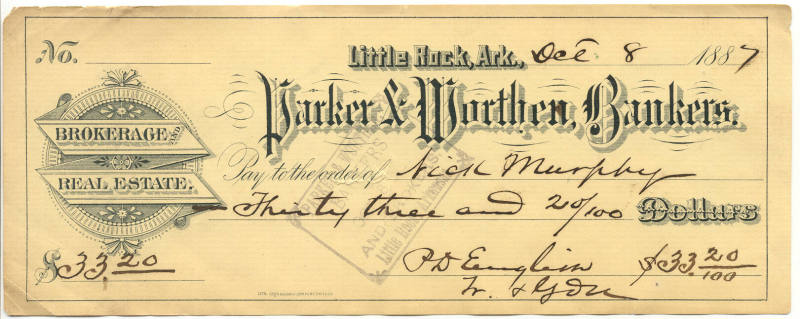 No.
Little Rock, Ark., Oct 8 1887
Parker & Worthen, Bankers.
BROKERAGE AND
REAL ESTATE.
Pay to the order of Nick Murphy
Thirty three and 20/100 Dollars
$33.20
P.D. English $33.20/100